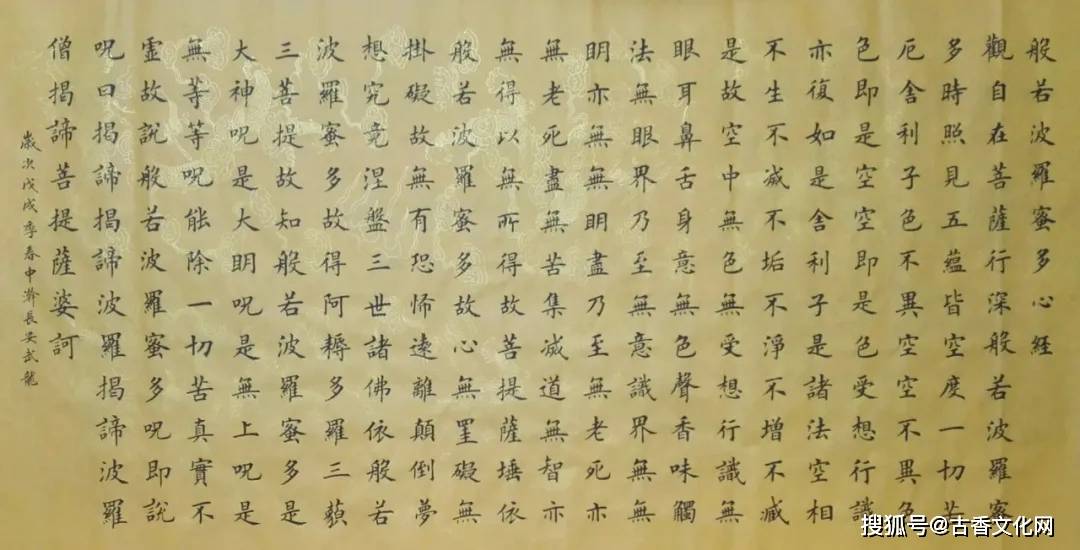 般若波羅蜜多心経
觀自在菩薩行深般若波羅蜜
多時照見五蘊皆空度一切苦
厄舍利子色不異空空不異色
色即是空空即是色受想行識
亦復如是舍利子是諸法空相
不生不滅不垢不淨不增不減
是故空中無色無受想行識無
眼耳鼻舌身意無色聲香味觸
法無眼界乃至無意識界無無
明亦無無明盡乃至無老死亦
無老死盡無苦集滅道無智亦
無得以無所得故菩提薩埵依
般若波羅蜜多故心無罣礙無
掛礙故無有恐怖遠離顛倒夢
想究竟涅盤三世諸佛依般若
波羅蜜多故得阿耨多羅三藐
三菩提故知般若波羅蜜多是
大神呪是大明呪是無上呪是
無等等呪能除一切苦真實不
靈故說般若波羅蜜多呪即說
呪曰揭諦揭諦波羅揭諦波羅
僧揭諦菩提薩婆訶
歲次戊戌季春中澣長安武龍
搜狐号@古香文化网